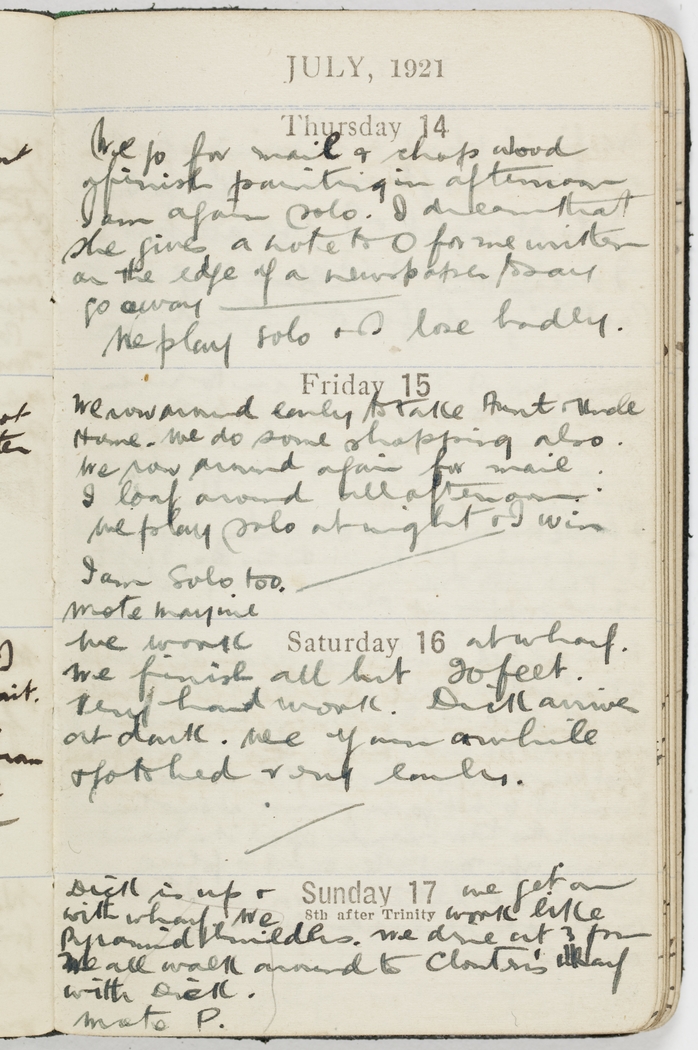 JULY, 1921
Thursday 14
We go for mail & chop wood
& finish painting in afternoon
I am again solo. I dream that
she gives a note to O for me written
on the edge of a newspaper to say
go away
We play solo & I lose badly.
Friday 15
We row around early to take Aunt & Uncle
Home. We do some shopping also.
We row around again for mail.
I loaf around all afternoon.
We play solo at night & I win
I am Solo too.
Wrote Marjorie
Saturday 16
We work at wharf.
We finish all but 20 feet.
Very hard work. Dick arrives
at dark. We yarn awhile
& to bed very early.
Sunday 17
8th after Trinity
Dick is up & we get on
with wharf. We work like
Pyramid builders. We dine at 3 pm
We all walk around to Clouter's Wharf
with Dick.
Wrote P.
ot
ait.